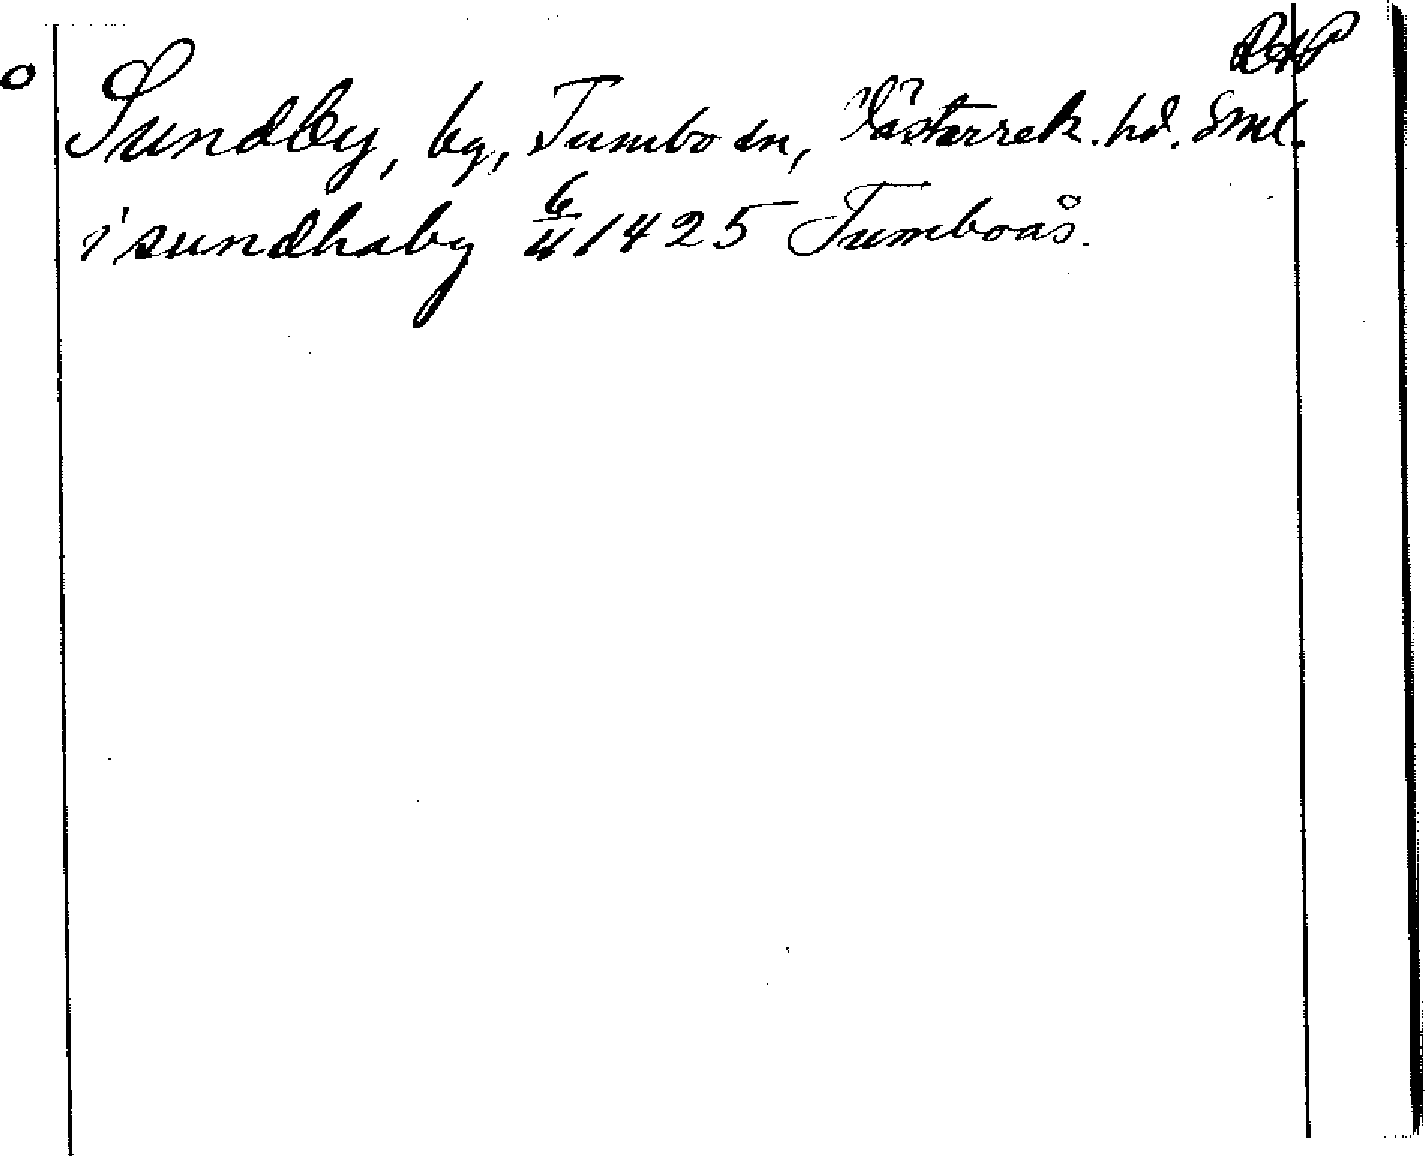 RAP
Sundby, by, Tumbo sn, Västerrek. hd. Sml.
i sundhaby 6/4 1425 Tumboås.